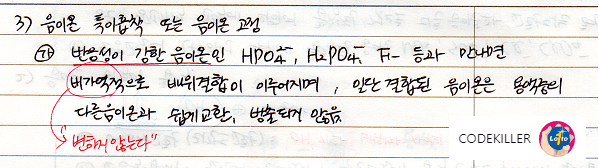 3) 음이온 특이흡착 또는 음이온 고정
㉮ 반응성이 강한 음이온인 HPO4²⁻, H2PO4⁻, F- 등과 만나면
비가역적으로 배위결합이 이루어지며, 일단 결합된 음이온은 용액중의
다른음이온과 쉽게교환, 방출되지 않음
"변하지 않는다"
CODEKILLER
Lotto
1